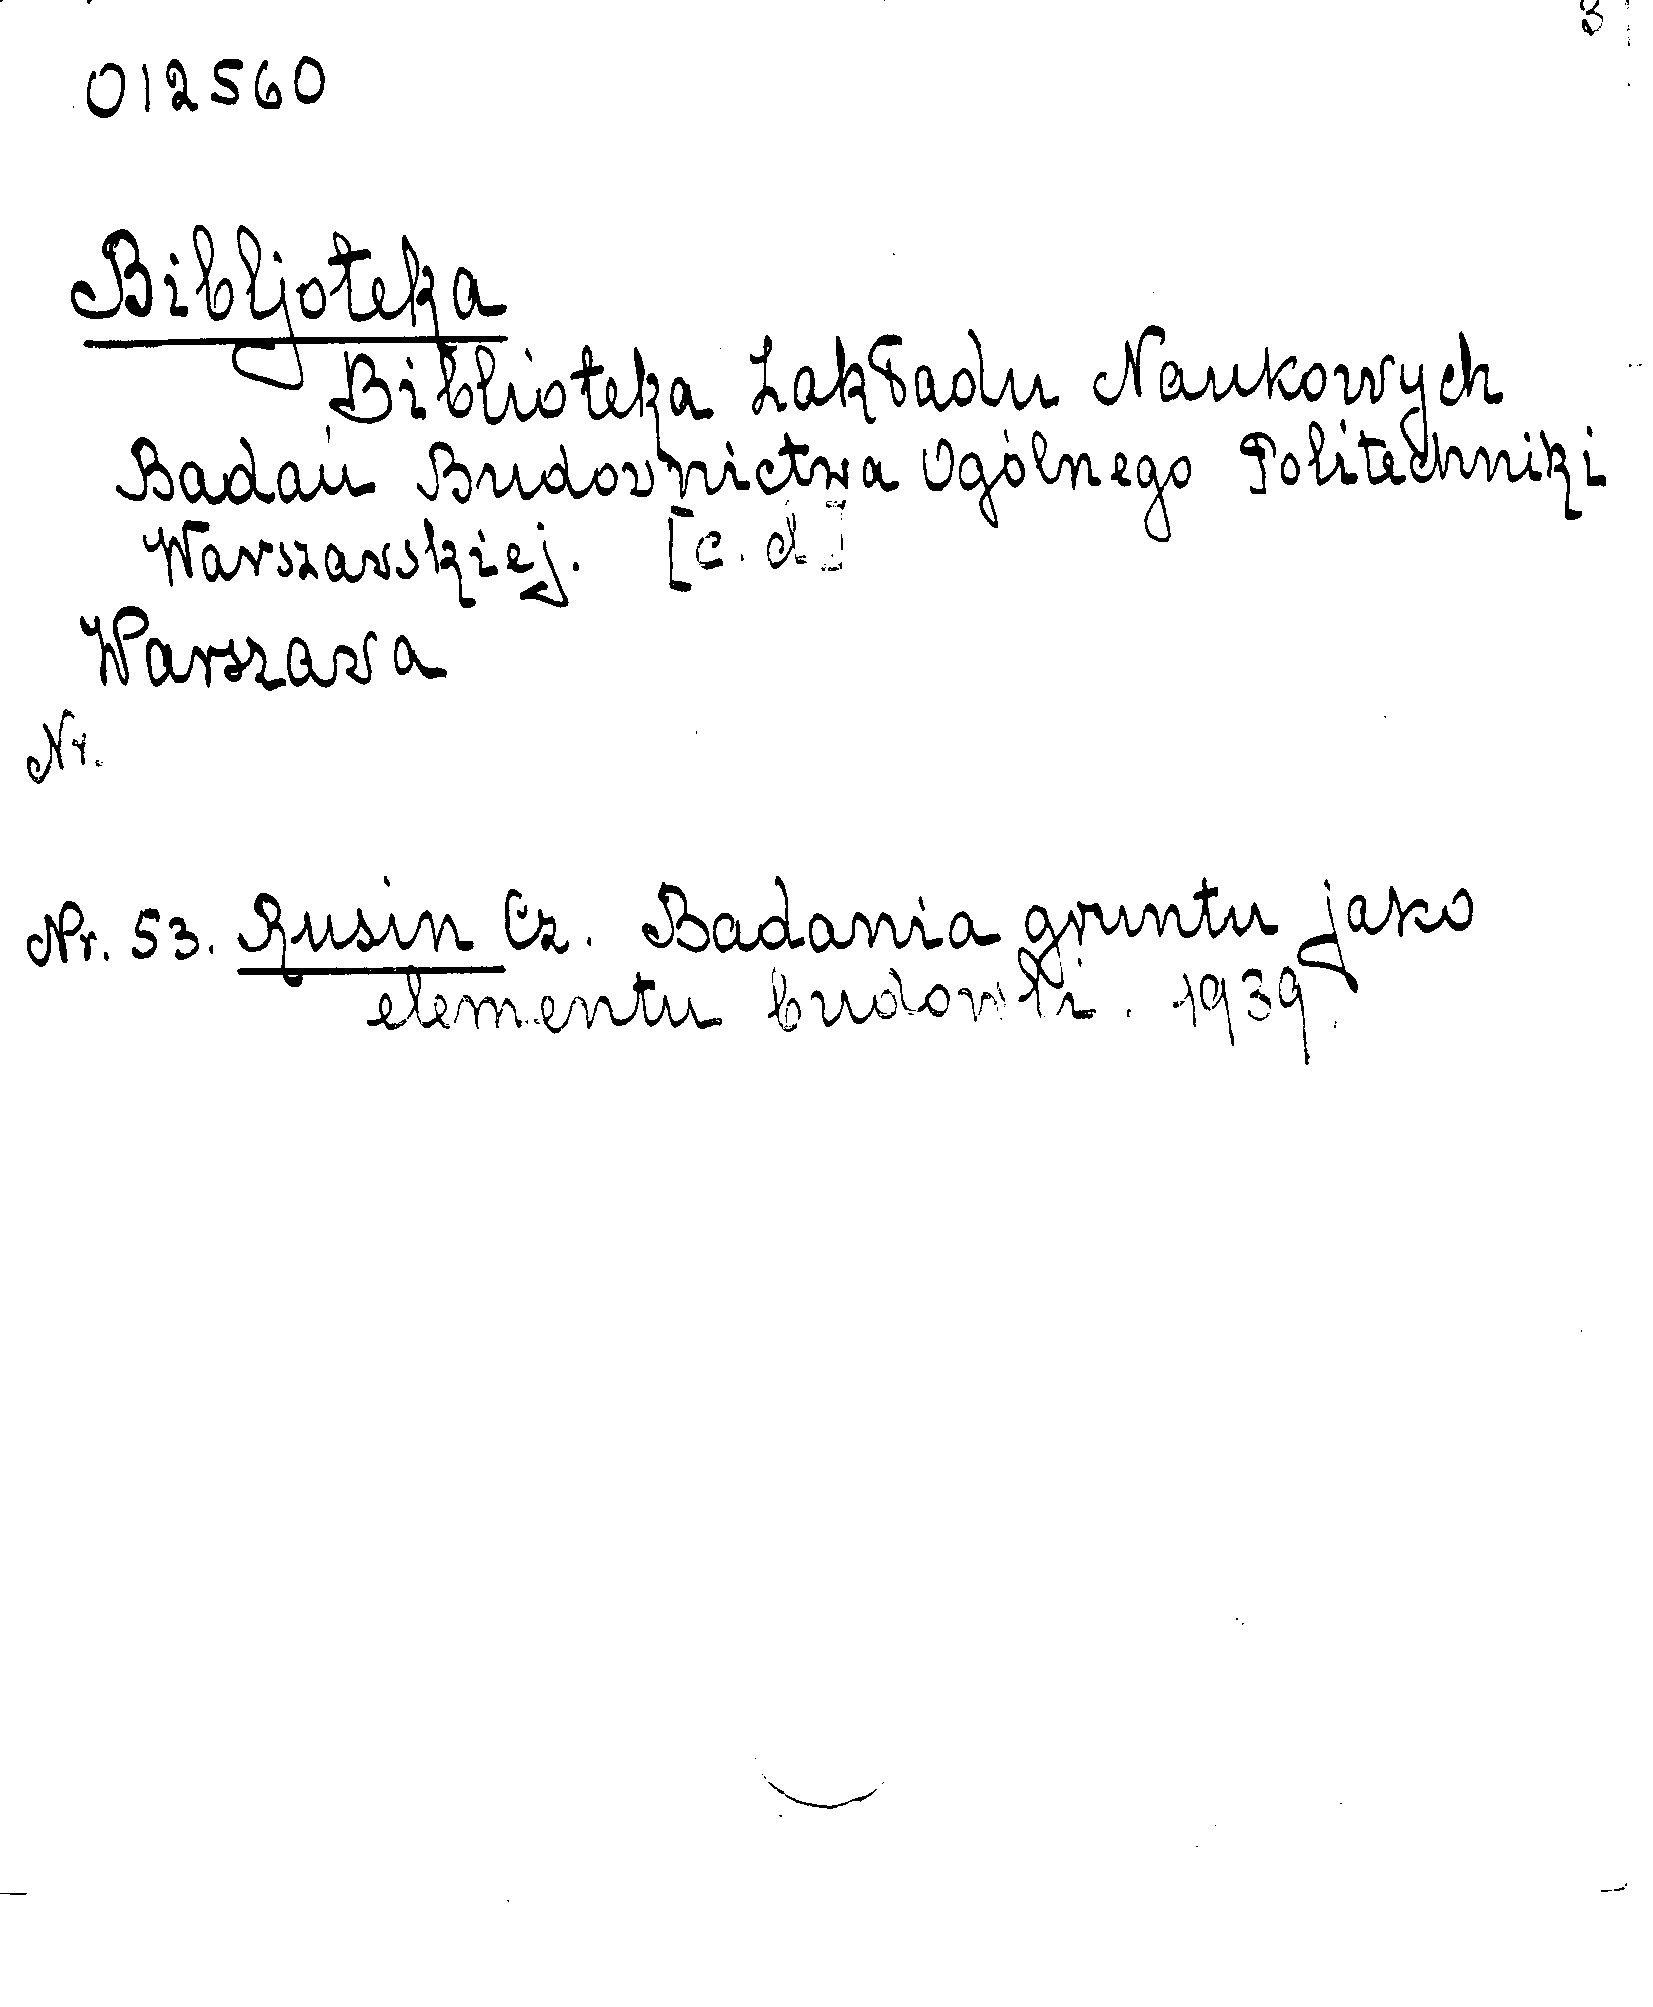 3
012560
Bibljoteka
Biblioteka Zakładu Naukowych
Badań Budownictwa Ogólnego Politechniki
Warszawskiej. [c.d.]
Warszawa
Nr.
Nr. 53. Rusin Cz. Badania gruntu jako
elementu budowli. 1939.